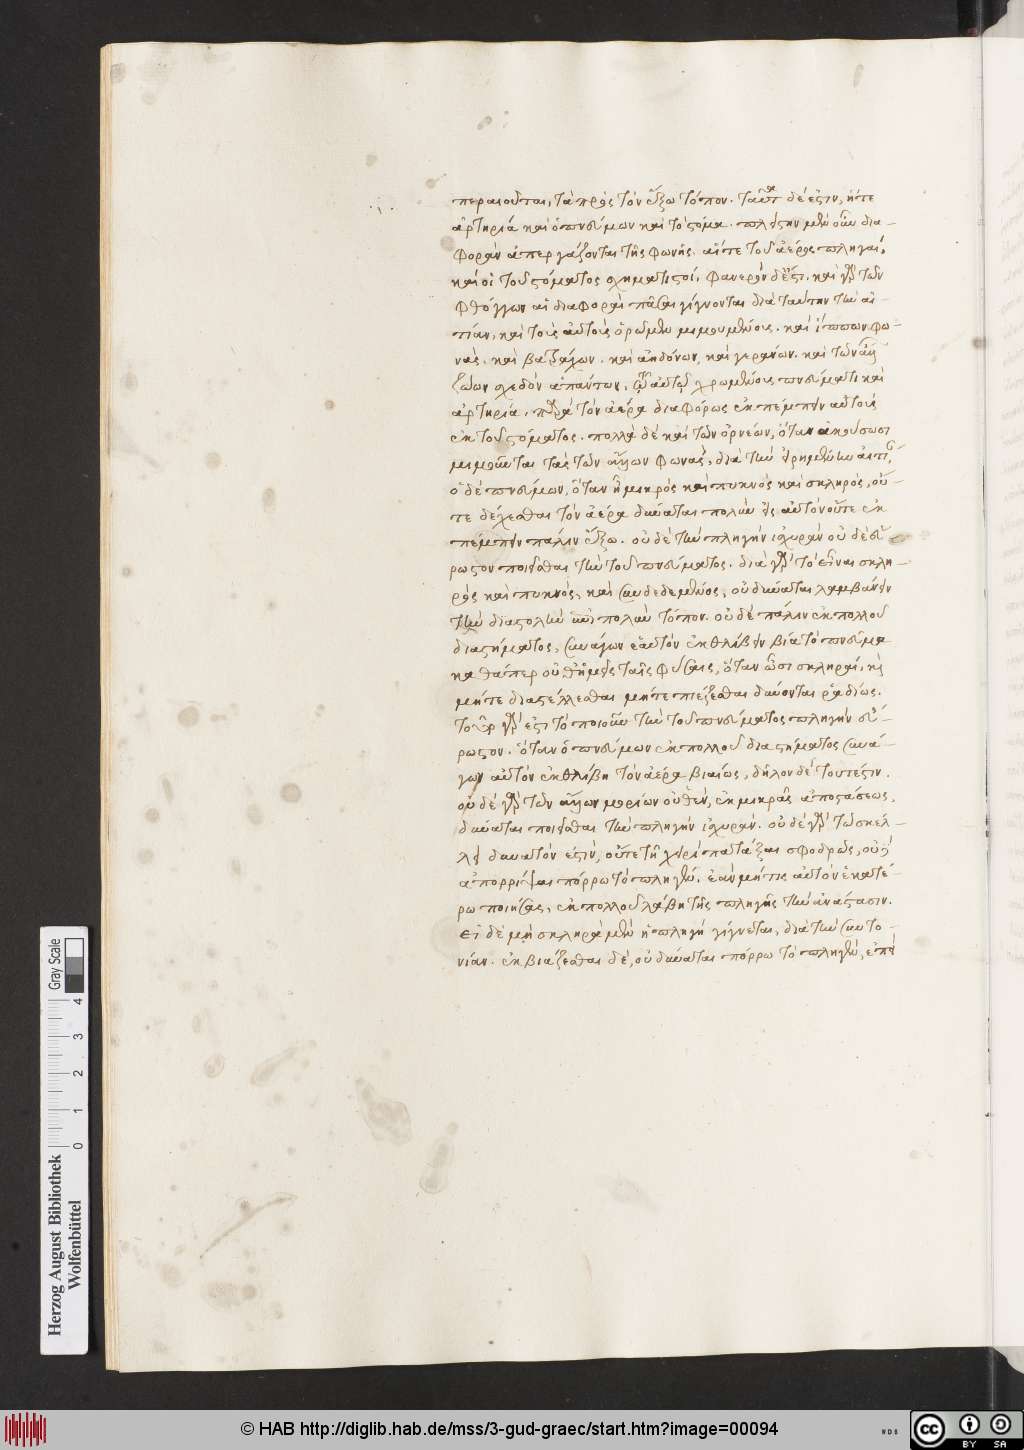 περαιοῦται, τὰ πρὸς τὸν ἔξω τόπον. ταῦτα δέ ἐστιν, ἥτε
ἀρτηρία καὶ ὁ πνεύμων καὶ τὸ στόμα. πλείστην μὲν οὖν δια-
φορὰν ἀπεργάζονται τῆς φωνῆς. αἵτε τοῦ ἀέρος πληγαί,
καὶ οἱ τοῦ στόματος σχηματιστοί. φανερὸν δέ ἐστι. καὶ γὰρ τῶν
φθόγγων αἱ διαφοραὶ πᾶσαι γίγνονται διὰ ταύτην τὴν αἰ-
τίαν. καὶ τοὺς αὐτοὺς ὁρῶμεν μιμουμένους. καὶ ἵππων φω-
νὰς. καὶ βατράχων. καὶ ἀηδόνων, καὶ γεράνων. καὶ τῶν ἄλλων
ζώων σχεδὸν ἁπάντων, τῷ αὐτῷ χρωμένους πνεύματι καὶ
ἀρτηρία, παρὰ τὸν ἀέρα διαφόρως ἐκπέμπειν αὐτοὺς
ἐκ τοῦ στόματος. πολλὰ δὲ καὶ τῶν ὀρνέων, ὅταν ἀκούσωσι
μιμοῦνται τὰς τῶν ἄλλων φωνάς, διὰ τὴν εἰρημένην αἰτίαν.
ὁ δὲ πνεύμων, ὅταν ἦ μικρὸς καὶ πυκνὸς καὶ σκληρός, οὔ-
τε δέχεσθαι τὸν ἀέρα δύναται πολὺν εἰς αὐτὸν οὔτε ἐκ
πέμπειν πάλιν ἔξω. οὐ δὲ τὴν πληγὴν ἰσχυρὰν οὐ δὲ εὔ-
ρωστον ποιεῖσθαι τὴν τοῦ πνεύματος. διὰ γὰρ τὸ εἶναι σκλη-
ρὸς καὶ πυκνὸς, καὶ συνδεδεμένος, οὐ δύναται λαμβάνειν
τὴν διαστολὴν ἐπὶ πολὺν τόπον. οὐ δὲ πάλιν ἐκ πολλοῦ
διαστήματος, συνάγων ἑαυτὸν ἐκθλίβειν βία τὸ πνεῦμα
καθάπερ οὐθ' ἡμεῖς ταῖς φύσαις, ὅταν ὦσι σκληραί, καὶ
μήτε διαστέλλεσθαι μήτε πιέζεσθαι δύνονται ῥαδίως.
τοῦτο γάρ ἐστι τὸ ποιοῦν τὴν τοῦ πνεύματος πληγὴν εὔ-
ρωστον. ὅταν ὁ πνεύμων ἐκ πολλοῦ διαστήματος συνά-
γων αὐτὸν ἐκθλίβη τὸν ἀέρα βιαίως, δῆλον δὲ τοῦτ' ἐστίν.
οὐ δὲ γὰρ τῶν ἄλλων μορίων οὐθὲν, ἐκ μικρᾶς ἀποστάσεως,
δύναται ποιεῖσθαι τὴν πληγὴν ἰσχυράν. οὐ δὲ γὰρ τῶ σκέλ-
λει δυνατόν ἐστιν, οὔτε τῇ χειρὶ πατάξαι σφοδρῶς, οὐδ'
ἀπορρίψαι πόρρω τὸ πληγέν. ἐὰν μή τις αὐτὸν ἑκατέ-
ρω ποιήσας, ἐκ πολλοῦ λάβη τῆς πληγῆς τὴν ἀνάστασιν.
εἰ δὲ μή σκληρὰ μὲν ἡ πληγὴ γίγνεται, διὰ τὴν συντο-
νίαν. ἐκβιάζεσθαι δέ, οὐ δύναται πόρρω τὸ πληγέν, ἐπεὶ
Herzog August Bibliothek
Wolfenbüttel
0 1 2 3 4
Gray Scale
© HAB http://diglib.hab.de/mss/3-gud-graec/start.htm?image=00094
WDB
cc BY SA